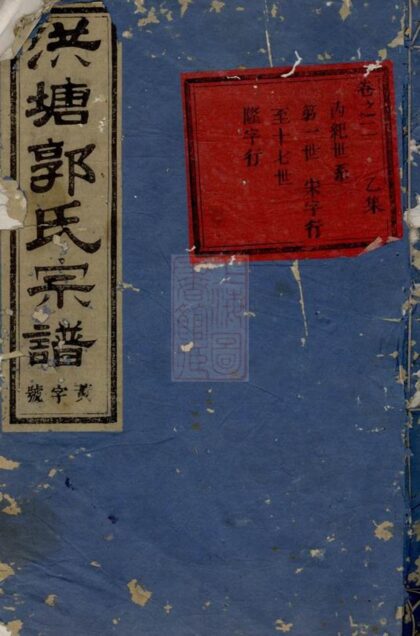 洪塘郭氏宗譜
黃字號
卷之二 乙集
內紀世系
第一世 宋字行
至十七世
隆字行
上海圖
書館藏